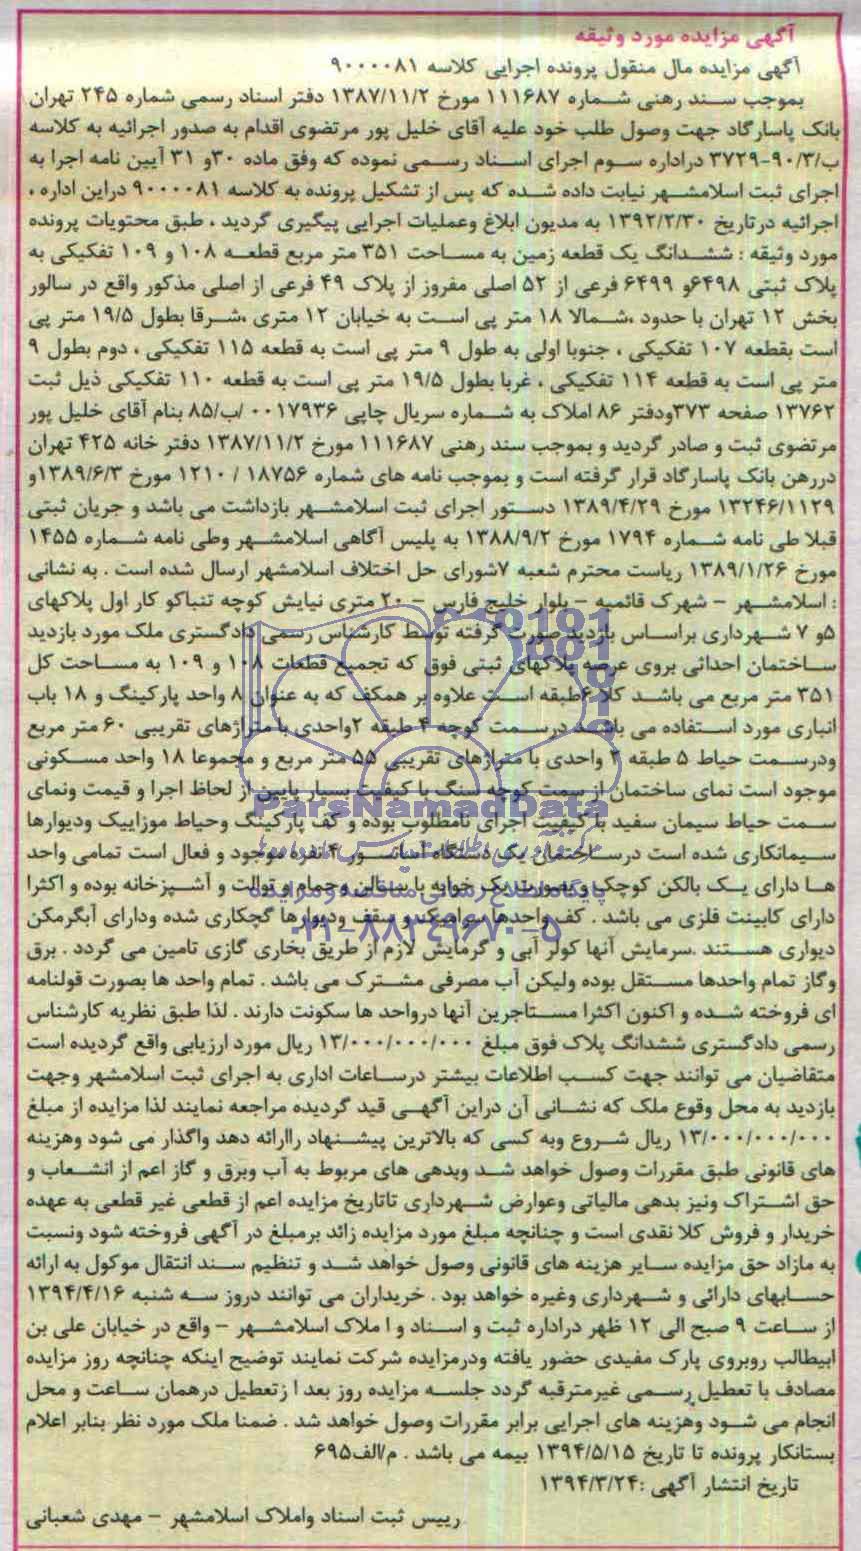 آگهی مزایده مورد وثیقه
آگهی مزایده مال منقول پرونده اجرایی کلاسه ۹۰۰۰۰۸۱
بموجب سند رهنی شماره ۱۱۱۶۸۷ مورخ ۱۳۸۷/۱۱/۲ دفتر اسناد رسمی شماره ۲۴۵ تهران
بانک پاسارگاد جهت وصول طلب خود علیه آقای خلیل پور مرتضوی اقدام به صدور اجرائیه به کلاسه
ب/۹۰/۳-۳۷۲۹ دراداره سوم اجرای اسناد رسمی نموده که وفق ماده ۳۰و ۳۱ آیین نامه اجرا به
اجرای ثبت اسلامشهر نیابت داده شده که پس از تشکیل پرونده به کلاسه ۹۰۰۰۰۸۱ دراین اداره ،
اجرائیه درتاریخ ۱۳۹۲/۲/۳۰ به مدیون ابلاغ وعملیات اجرایی پیگیری گردید ، طبق محتویات پرونده
مورد وثیقه : ششدانگ یک قطعه زمین به مساحت ۳۵۱ متر مربع قطعه ۱۰۸ و ۱۰۹ تفکیکی به
پلاک ثبتی ۶۴۹۸و ۶۴۹۹ فرعی از ۵۲ اصلی مفروز از پلاک ۴۹ فرعی از اصلی مذکور واقع در سالور
بخش ۱۲ تهران با حدود ،شمالا ۱۸ متر پی است به خیابان ۱۲ متری ،شرقا بطول ۱۹/۵ متر پی
است بقطعه ۱۰۷ تفکیکی ، جنوبا اولی به طول ۹ متر پی است به قطعه ۱۱۵ تفکیکی ، دوم بطول ۹
متر پی است به قطعه ۱۱۴ تفکیکی ، غربا بطول ۱۹/۵ متر پی است به قطعه ۱۱۰ تفکیکی ذیل ثبت
۱۳۷۶۲ صفحه ۳۷۳ودفتر ۸۶ املاک به شماره سریال چاپی ۰۰۱۷۹۳۶ /ب/۸۵ بنام آقای خلیل پور
مرتضوی ثبت و صادر گردید و بموجب سند رهنی ۱۱۱۶۸۷ مورخ ۱۳۸۷/۱۱/۲ دفتر خانه ۴۲۵ تهران
دررهن بانک پاسارگاد قرار گرفته است و بموجب نامه های شماره ۱۸۷۵۶ / ۱۲۱۰ مورخ ۱۳۸۹/۶/۳و
۱۳۲۴۶/۱۱۲۹ مورخ ۱۳۸۹/۴/۲۹ دستور اجرای ثبت اسلامشهر بازداشت می باشد و جریان ثبتی
قبلا طی نامه شماره ۱۷۹۴ مورخ ۱۳۸۸/۹/۲ به پلیس آگاهی اسلامشهر وطی نامه شماره ۱۴۵۵
مورخ ۱۳۸۹/۱/۲۶ ریاست محترم شعبه ۷شورای حل اختلاف اسلامشهر ارسال شده است . به نشانی
: اسلامشهر - شهرک قائمیه - بلوار خلیج فارس - ۲۰ متری نیایش کوچه تنباکو کار اول پلاکهای
۵و ۷ شهرداری براساس بازدید صورت گرفته توسط کارشناس رسمی دادگستری ملک مورد بازدید
ساختمان احداثی بروی عرصه پلاکهای ثبتی فوق که تجمیع قطعات ۱۰۸ و ۱۰۹ به مساحت کل
۳۵۱ متر مربع می باشد کلا ۶طبقه است علاوه بر همکف که به عنوان ۸ واحد پارکینگ و ۱۸ باب
انباری مورد استفاده می باشد درسمت کوچه ۴ طبقه ۲واحدی با متراژهای تقریبی ۶۰ متر مربع
ودرسمت حیاط ۵ طبقه ۲ واحدی با متراژهای تقریبی ۵۵ متر مربع و مجموعا ۱۸ واحد مسکونی
موجود است نمای ساختمان از سمت کوچه سنگ با کیفیت بسیار پایین از لحاظ اجرا و قیمت ونمای
سمت حیاط سیمان سفید با کیفیت اجرای نامطلوب بوده و کف پارکینگ وحیاط موزاییک ودیوارها
سیمانکاری شده است درساختمان یک دستگاه آسانسور ۴ نفره موجود و فعال است تمامی واحد
ها دارای یک بالکن کوچک و بصورت یک خوابه با سالن وحمام و توالت و آشپزخانه بوده و اکثرا
دارای کابینت فلزی می باشد . کف واحدها سرامیک و سقف ودیوارها گچکاری شده ودارای آبگرمکن
دیواری هستند .سرمایش آنها کولر آبی و گرمایش لازم از طریق بخاری گازی تامین می گردد . برق
وگاز تمام واحدها مستقل بوده ولیکن آب مصرفی مشترک می باشد . تمام واحد ها بصورت قولنامه
ای فروخته شده و اکنون اکثرا مستاجرین آنها درواحد ها سکونت دارند . لذا طبق نظریه کارشناس
رسمی دادگستری ششدانگ پلاک فوق مبلغ ۱۳/۰۰۰/۰۰۰/۰۰۰ ریال مورد ارزیابی واقع گردیده است
متقاضیان می توانند جهت کسب اطلاعات بیشتر درساعات اداری به اجرای ثبت اسلامشهر وجهت
بازدید به محل وقوع ملک که نشانی آن دراین آگهی قید گردیده مراجعه نمایند لذا مزایده از مبلغ
۱۳/۰۰۰/۰۰۰/۰۰۰ ریال شروع وبه کسی که بالاترین پیشنهاد راارائه دهد واگذار می شود وهزینه
های قانونی طبق مقررات وصول خواهد شد وبدهی های مربوط به آب وبرق و گاز اعم از انشعاب و
حق اشتراک ونیز بدهی مالیاتی وعوارض شهرداری تاتاریخ مزایده اعم از قطعی غیر قطعی به عهده
خریدار و فروش کلا نقدی است و چنانچه مبلغ مورد مزایده زائد برمبلغ در آگهی فروخته شود ونسبت
به مازاد حق مزایده سایر هزینه های قانونی وصول خواهد شد و تنظیم سند انتقال موکول به ارائه
حسابهای دارائی و شهرداری وغیره خواهد بود . خریداران می توانند دروز سه شنبه ۱۳۹۴/۴/۱۶
از ساعت ۹ صبح الی ۱۲ ظهر دراداره ثبت و اسناد و ا ملاک اسلامشهر - واقع در خیابان علی بن
ابیطالب روبروی پارک مفیدی حضور یافته ودرمزایده شرکت نمایند توضیح اینکه چنانچه روز مزایده
مصادف با تعطیل رسمی غیرمترقبه گردد جلسه مزایده روز بعد ا زتعطیل درهمان ساعت و محل
انجام می شود وهزینه های اجرایی برابر مقررات وصول خواهد شد . ضمنا ملک مورد نظر بنابر اعلام
بستانکار پرونده تا تاریخ ۱۳۹۴/۵/۱۵ بیمه می باشد . م/الف۶۹۵
تاریخ انتشار آگهی :۱۳۹۴/۳/۲۴
رییس ثبت اسناد واملاک اسلامشهر - مهدی شعبانی
ParsNamadData
پایگاه اطلاع رسانی مناقصه و مزایده
۰۲۱-۸۸۳۴۹۶۷۰-۵